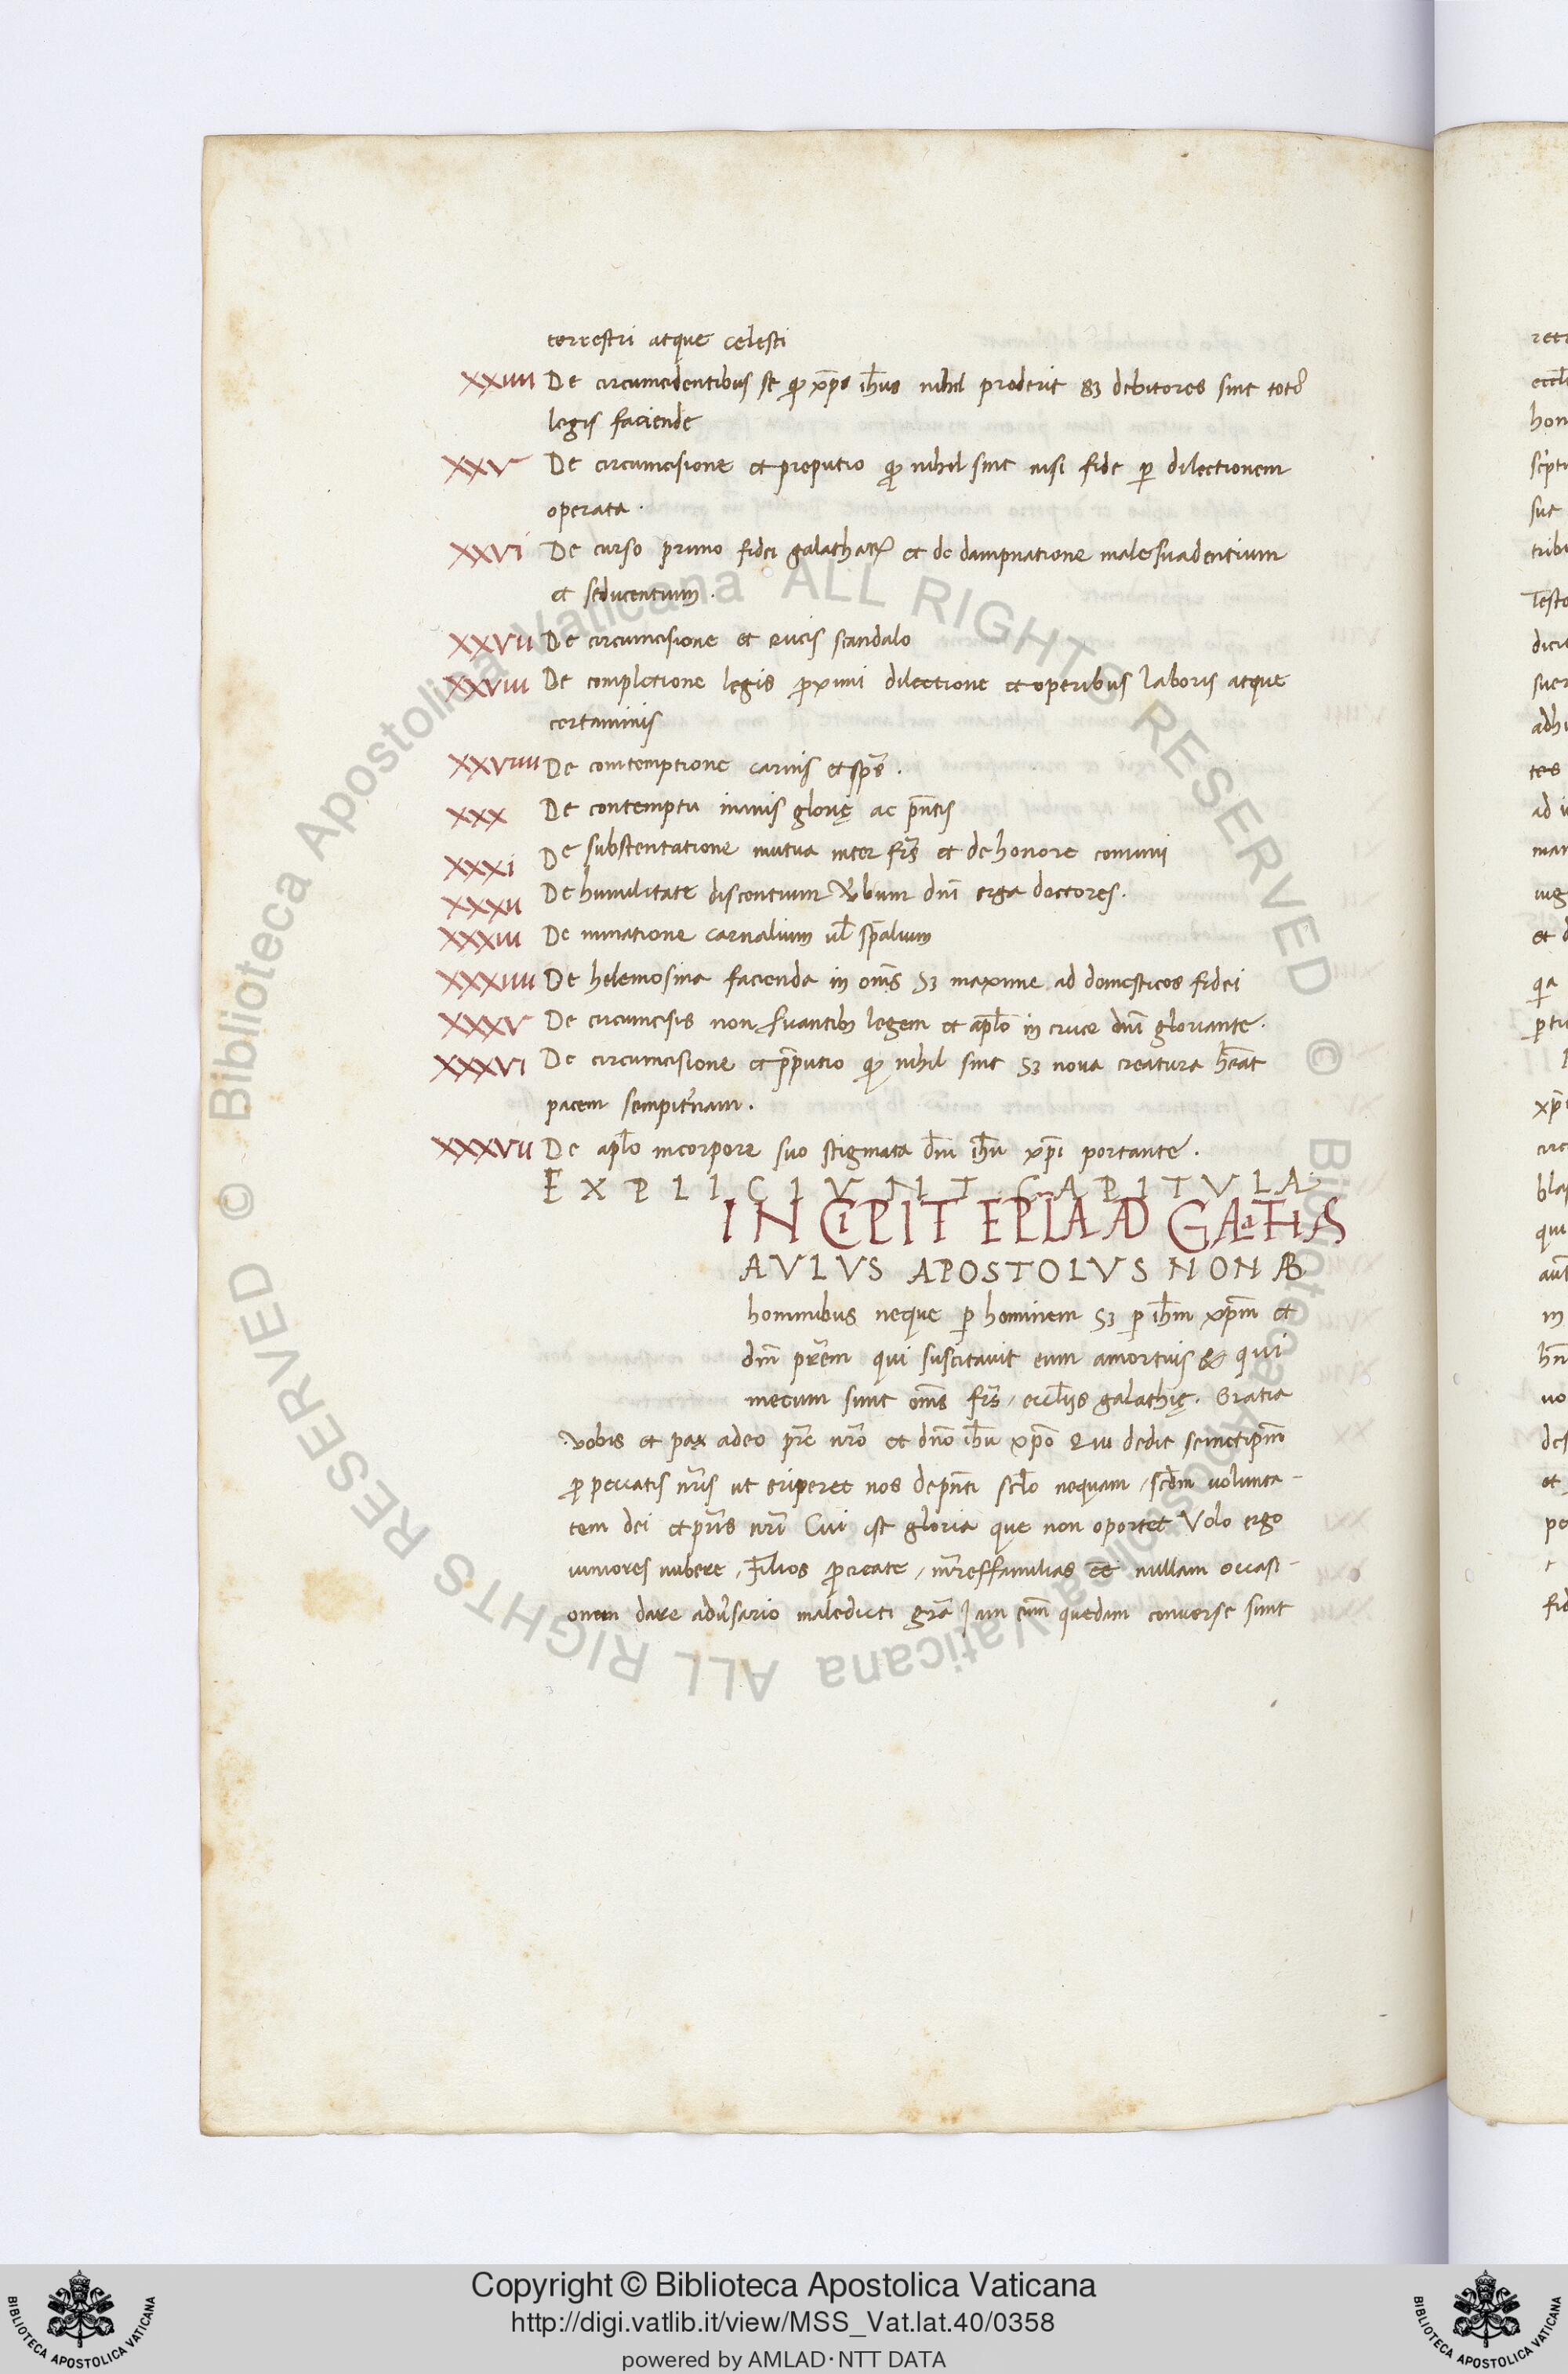 terrestri atque celesti
XXIIII De circumcidentibus se qđ xp̄s ih̄us nihil proderit sꝫ debitores sint totiꝰ
legis faciende
XXV De circumcisione et preputio qđ nihil sint nisi fide ꝑ dilectionem
operata .
XXVI De curso primo fidei galathaꝝ et de dampnatione malesuadentium
et seducentium .
XXVII De circumcisione et crucis scandalo
XXVIII De completione legis ꝓximi dilectione et operibus laboris atque
certaminis
XXVIIII De comtemptione carnis et sp̄s .
XXX De contemptu inanis glorię ac p̄ntis
XXXI De substentatione mutua inter fr̄s et de honore comuni
XXXII De humilitate discentium v̄bum dn̄i erga doctores .
XXXIII De minatione carnalium ul̄ sp̄alium
XXXIIII De helemosina facienda in om̄s sꝫ maxime ad domesticos fidei
XXXV De circumcisis non s̄uantibꝫ legem et apl̄o in cruce dn̄i gloriante .
XXXVI De circumcisione et p̄putio qđ nihil sint sꝫ nova creatura h̄eat
pacem sempit̄nam .
XXXVII De apl̄o in corpore suo stigmata dn̄i ih̄u xp̄i portante .
EXPLICIVNT CAPITVLA
INCIPIT EPLA AD GALATHAS
AVLVS APOSTOLVS NON AB
hominibus neque ꝑ hominem sꝫ ꝑ ih̄m xp̄m et
dm̄ pr̄em qui suscitavit eum a mortuis & qui
mecum sunt om̄s fr̄s / eccl̄iis galathię . Gratia
vobis et pax a deo pr̄e nr̄o et dn̄o ih̄u xp̄o Qui dedit semetip̄m
ꝓ peccatis nr̄is ut eriperet nos de p̄nti scl̄o nequam / scd̄m volunta-
tem dei et pr̄is nr̄i Cui est gloria que non oportet Volo ergo
iuniores nubere / Filios ꝓcreate / mr̄esfamilias ee̅ nullam occasi-
onem dare adv̄sario maledicti gr̄a Jam en̄m quedam converse sunt
Copyright © Biblioteca Apostolica Vaticana
http://digi.vatlib.it/view/MSS_Vat.lat.40/0358
powered by AMLAD·NTT DATA